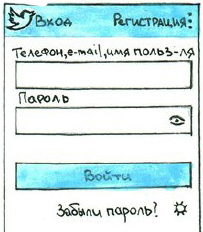 Вход Регистрация
Телефон,e-mail,имя польз-ля
Пароль
Войти
Забыли пароль?